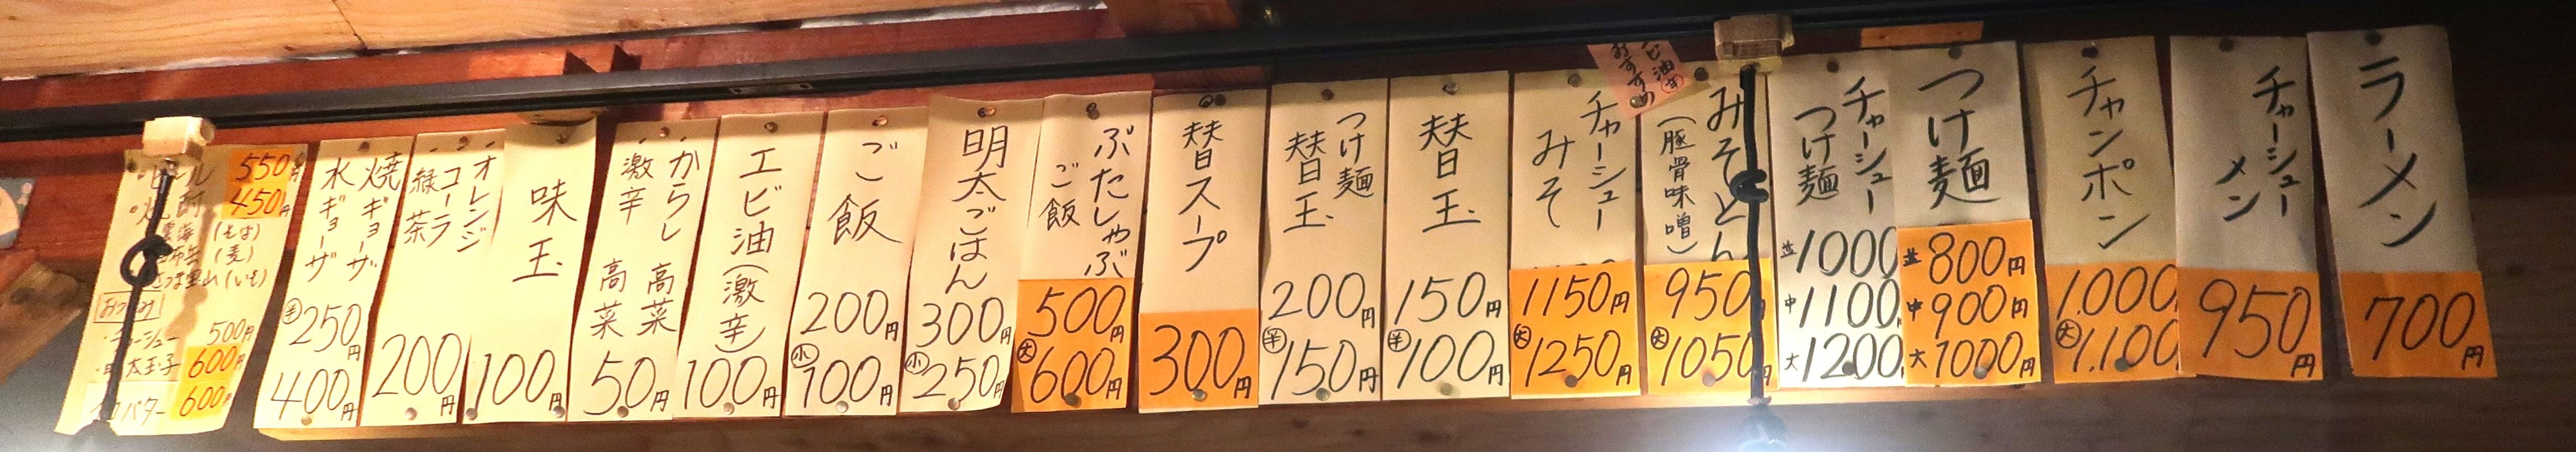 ラーメン
700円
チャーシュー
メン
950円
チャンポン
1.000
大1.100
つけ麺
並800円
中900円
大1000円
チャーシュー
つけ麺
並1000
中1100
大1200
みそとん
(豚骨味噌)
950
大1050円
油
おすすめ
チャーシュー
みそ
1150円
大1250円
替玉
150円
半100円
つけ麺
替玉
200円
半150円
替スープ
300円
ぶたしゃぶ
ご飯
500円
大600円
明太ごはん
300円
小250円
ご飯
200円
小100円
エビ油(激辛)
100円
からし高菜
激辛高菜
50円
味玉
100円
オレンジ
コーラ
緑茶
200円
焼ギョーザ
水ギョーザ
半250円
400円
ビール 550円
焼酎 450円
雲海(そば)
(麦)
(いも)
おつまみ
チャーシュー 500円
玉子 600円
バター 600円